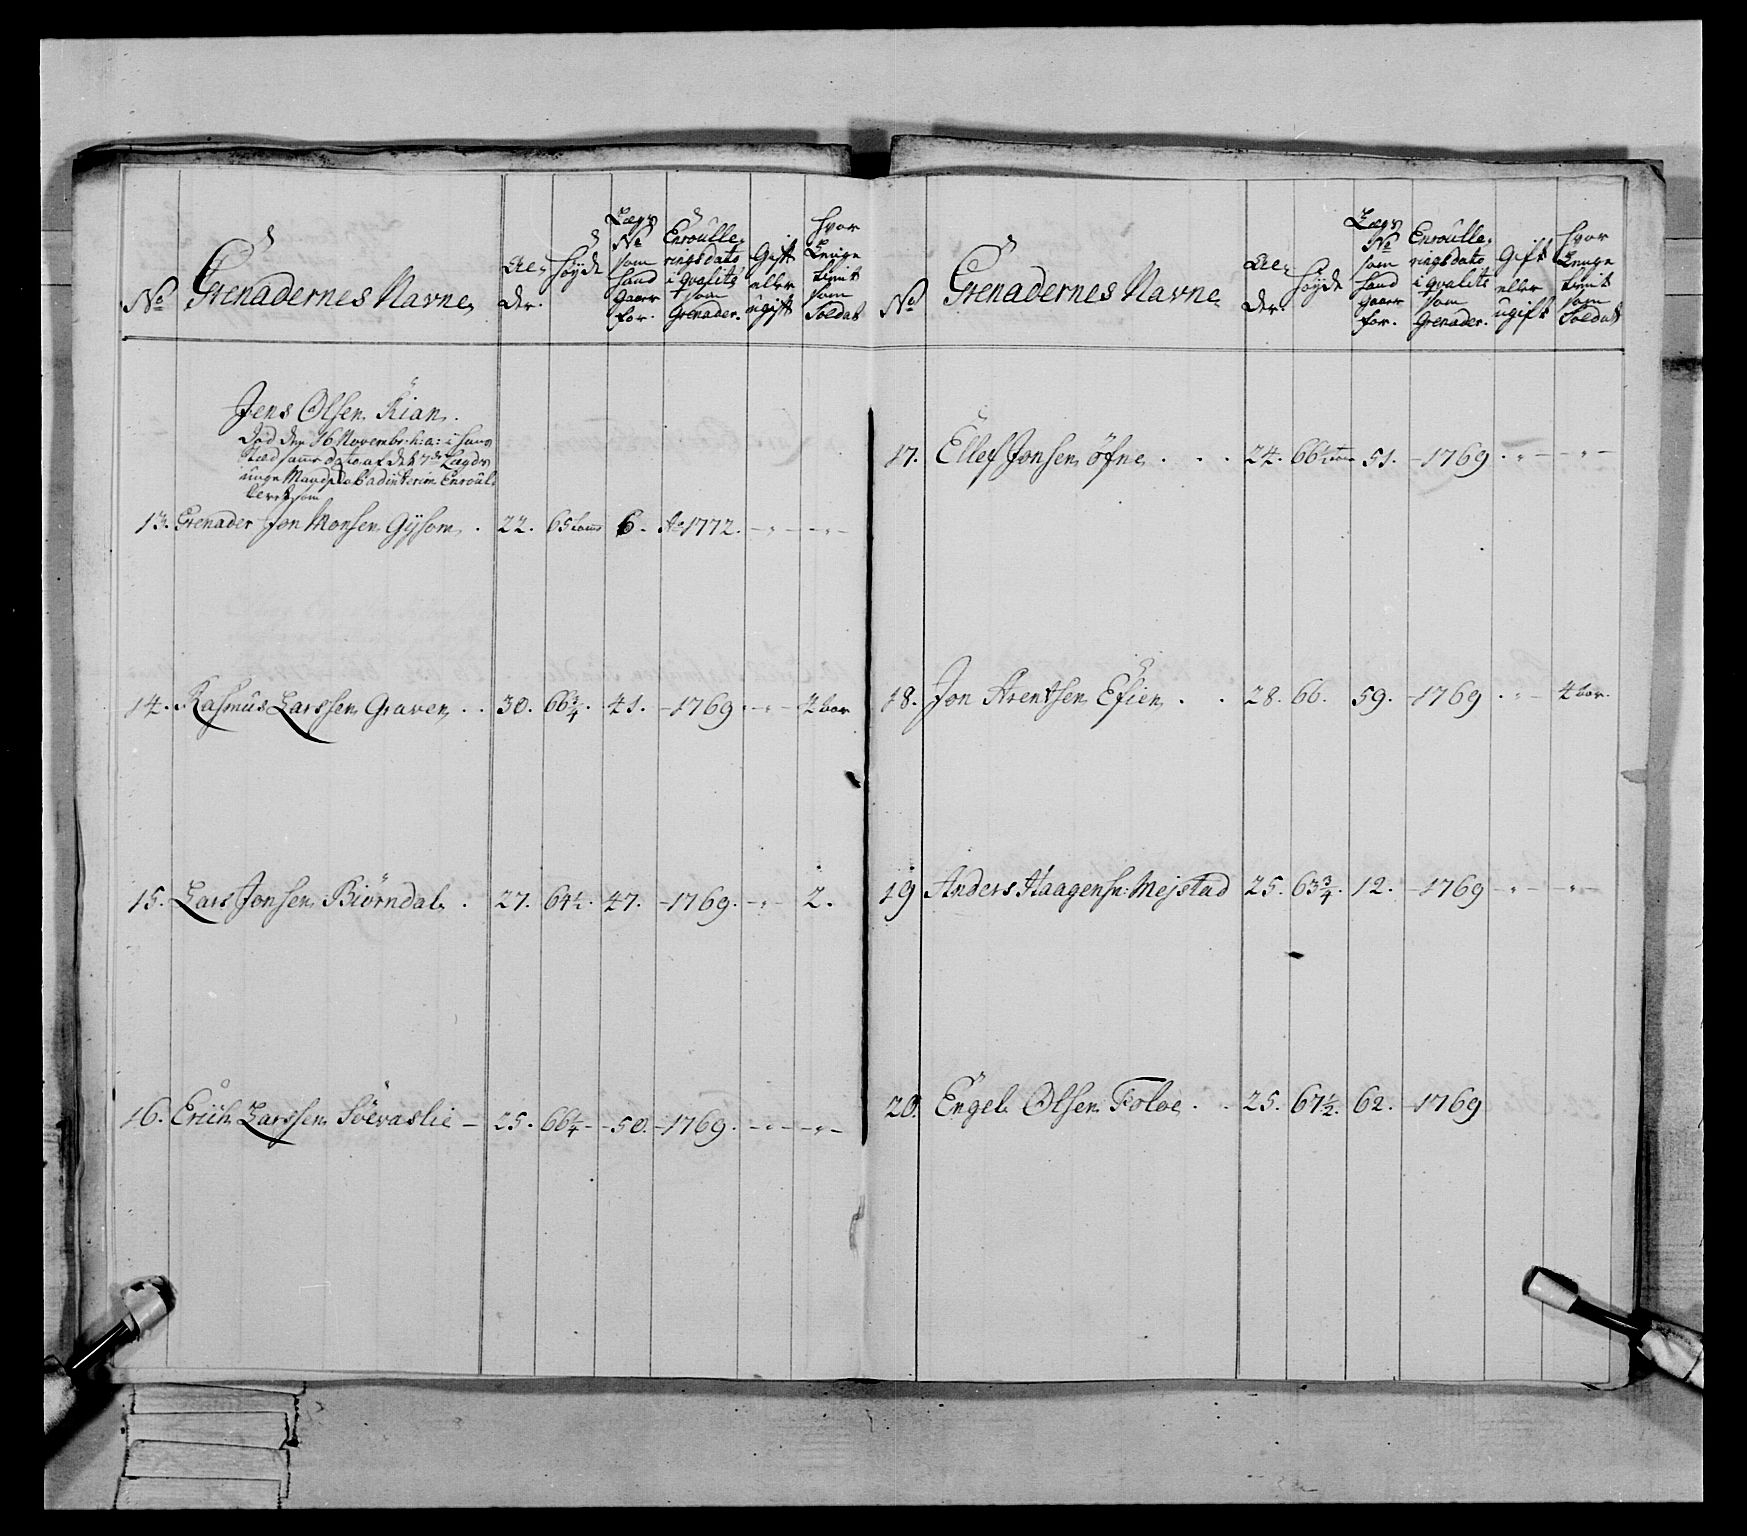 No
Grenadernes Navne
Al-
der.
Høyde
Lægs
No
som
hand
gaaer
for.
Enroulle-
ringsdato
i qvalité
som
Grenader.
Gift
eller
ugift
hvor
Lenge
tient
som
Soldat
Jens Olsen Kian.
død den 16 Novembr: h: a: i hans
Stæd samme dato af det 7de Lægds
unge Mandskab ad interim Enroul-
leret som
13. Grenader Jon Monsen Gysom. 22. 65 6. Ao 1772. - " - - " -
14. Rasmus Larssen Graven. . 30. 66 3/4. 41. -1769. - " - 4 aar
15. Lars Jonsen Biørndal. . 27. 64 1/2. 47. -1769. - " - 2.
16. Erich Larssen Søevaslie - 25. 66 1/4 - -50. -1769. - " - - " -
No
Grenadernes Navne
Al-
der.
Høyde
Lægs
No
som
hand
gaaer
for.
Enroulle-
ringsdato
i qvalité
som
Grenader.
Gift
eller
ugift
hvor
Lenge
tient
som
Soldat
17. Ellef Jonsen Øfne . . . 24. 66 1/2 51. -1769. - " - - " -
18. Jon Arentsen Efien . . 28. 66. 59. -1769. - " - 4 aar.
19 Anders Haagens: Mejstad 25. 63 3/4. 12. -1769 - " - - " -
20. Engel Olsen Foloe . . 25. 67 1/2. 62. -1769